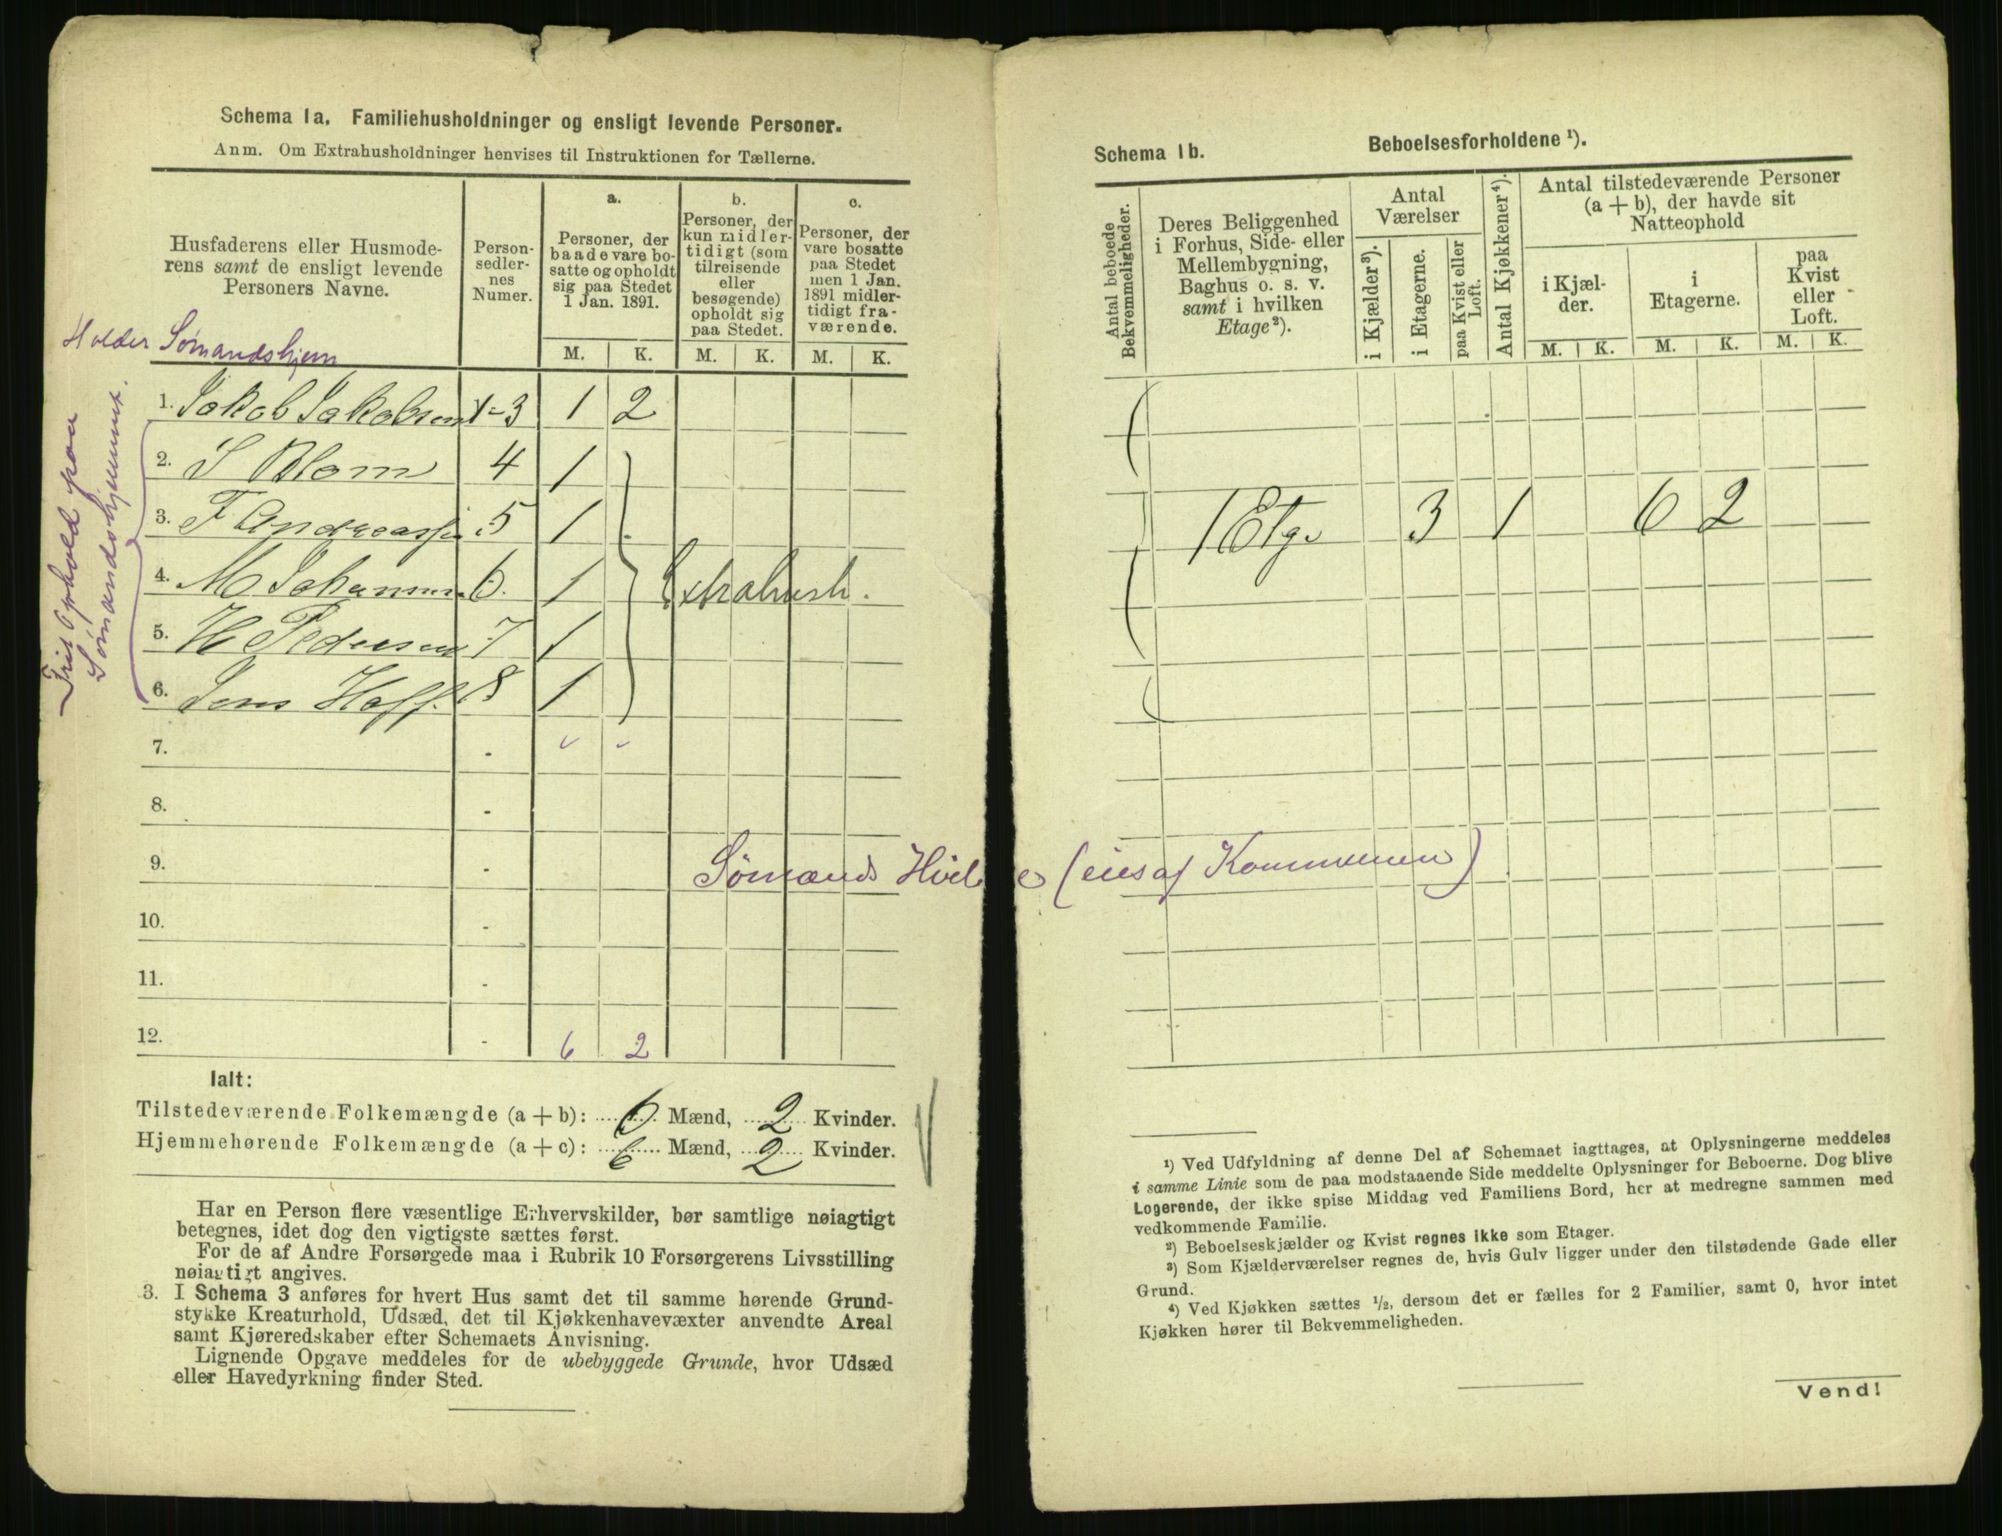 Schema 1a. Familiehusholdninger og ensligt levende Personer.
Anm. Om Extrahusholdninger henvises til Instruktionen for Tællerne.
Husfaderens eller Husmoderens samt de ensligt levende Personers Navne.
Personsedlernes Numer.
a. Personer, der baade vare bosatte og opholdt sig paa Stedet 1 Jan. 1891.
b. Personer, der kun midlertidigt (som tilreisende eller besøgende) opholdt sig paa Stedet.
c. Personer, der vare bosatte paa Stedet men 1 Jan. 1891 midlertidigt fraværende.
M. K. M. K. M. K.
Holder Sømandshjem
Frit Ophold paa
Sømandshjemmet.
1. Jakob Jakobsen 1-3 1 2
2. S Blom 4 1
3. F Andreassen 5 1
4. M Johannsen 6. 1 Extrahush.
5. H Pedersen 7 1
6. Jens Hoff. 8 1
7.
8.
9. Sømænds Hvile (eies af Kommunen)
10.
11.
12. 6 2
Ialt:
Tilstedeværende Folkemængde (a + b): 6 Mænd, 2 Kvinder.
Hjemmehørende Folkemængde (a + c): 6 Mænd, 2 Kvinder.
Har en Person flere væsentlige Erhvervskilder, bør samtlige nøiagtigt
betegnes, idet dog den vigtigste sættes først.
For de af Andre Forsørgede maa i Rubrik 10 Forsørgerens Livsstilling
nøiagtigt angives.
3. I Schema 3 anføres for hvert Hus samt det til samme hørende Grund-
stykke Kreaturhold, Udsæd, det til Kjøkkenhavevæxter anvendte Areal
samt Kjøreredskaber efter Schemaets Anvisning.
Lignende Opgave meddeles for de ubebyggede Grunde, hvor Udsæd
eller Havedyrkning finder Sted.
Schema 1b. Beboelsesforholdene ¹).
Antal beboede Bekvemmeligheder.
Deres Beliggenhed i Forhus, Side- eller Mellembygning, Baghus o. s. v. samt i hvilken Etage ²).
Antal Værelser
i Kjælder ³).
i Etagerne.
paa Kvist eller Loft.
Antal Kjøkkener ⁴).
Antal tilstedeværende Personer (a + b), der havde sit Natteophold
i Kjælder.
i Etagerne.
paa Kvist eller Loft.
M. K. M. K. M. K.
1 Etg. 3 1 6 2
¹) Ved Udfyldning af denne Del af Schemaet iagttages, at Oplysningerne meddeles
i samme Linie som de paa modstaaende Side meddelte Oplysninger for Beboerne. Dog blive
Logerende, der ikke spise Middag ved Familiens Bord, her at medregne sammen med
vedkommende Familie.
²) Beboelseskjælder og Kvist regnes ikke som Etager.
³) Som Kjælderværelser regnes de, hvis Gulv ligger under den tilstødende Gade eller
Grund.
⁴) Ved Kjøkken sættes ½, dersom det er fælles for 2 Familier, samt 0, hvor intet
Kjøkken hører til Bekvemmeligheden.
Vend!